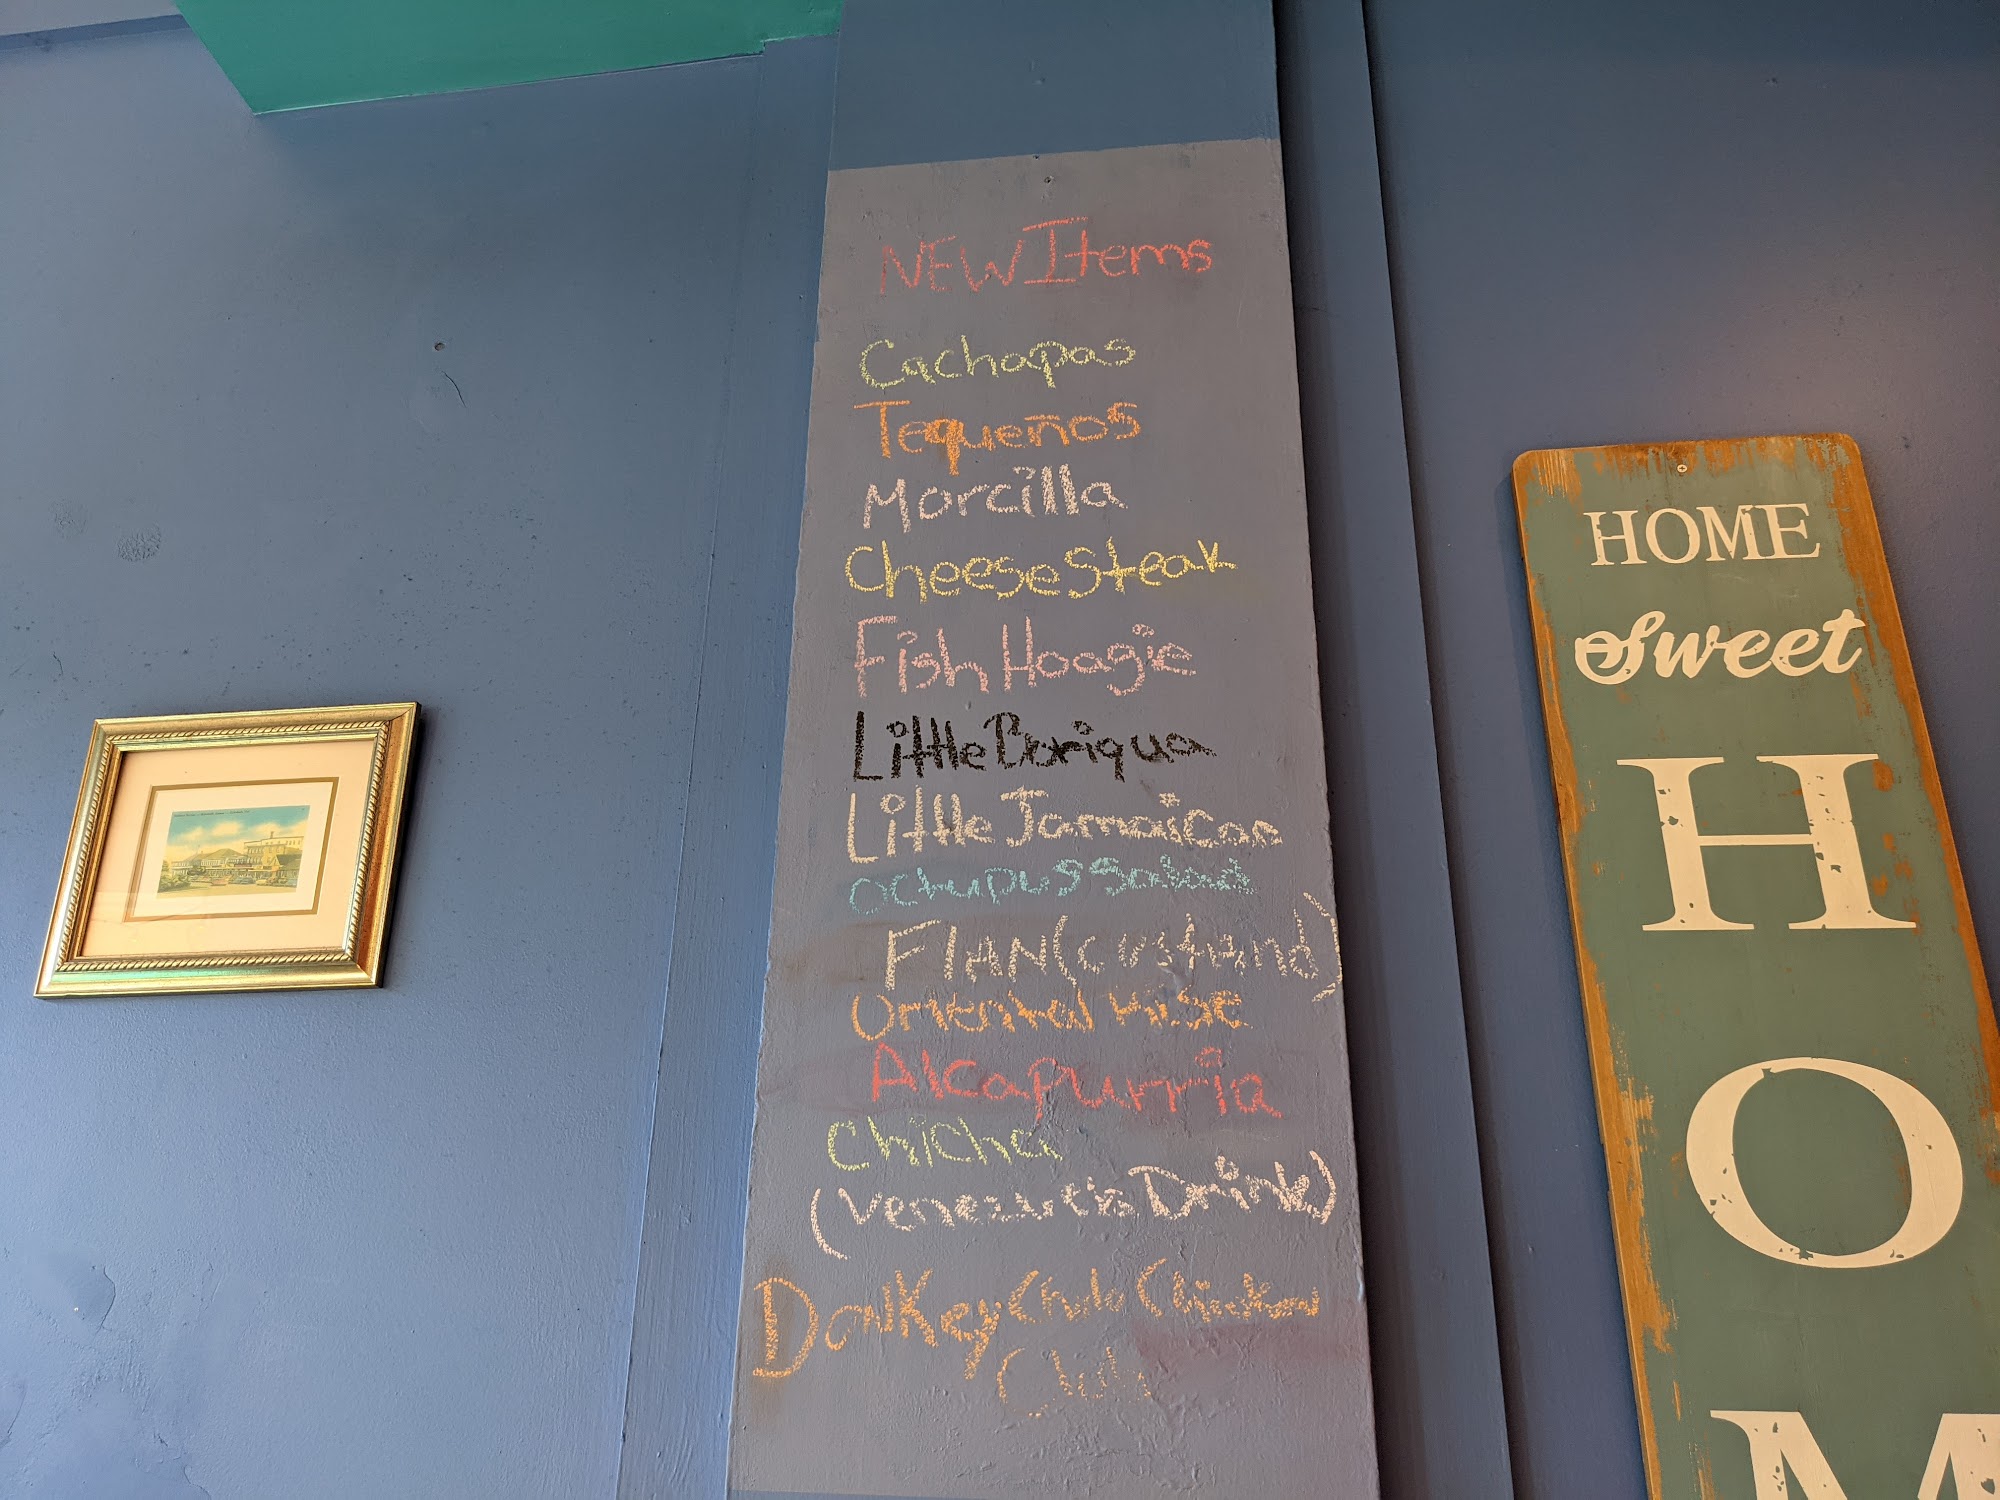 NEW Items
Cachapas
Tequeños
Morcilla
Cheese Steak
Fish Hoagie
Little Boriqua
Little Jamaican
Octupus Salad
FlAN (custand)
Oriental
Alcapurria
Chicha
Drink)
Donkey Chicken
HOME
Sweet
HOM